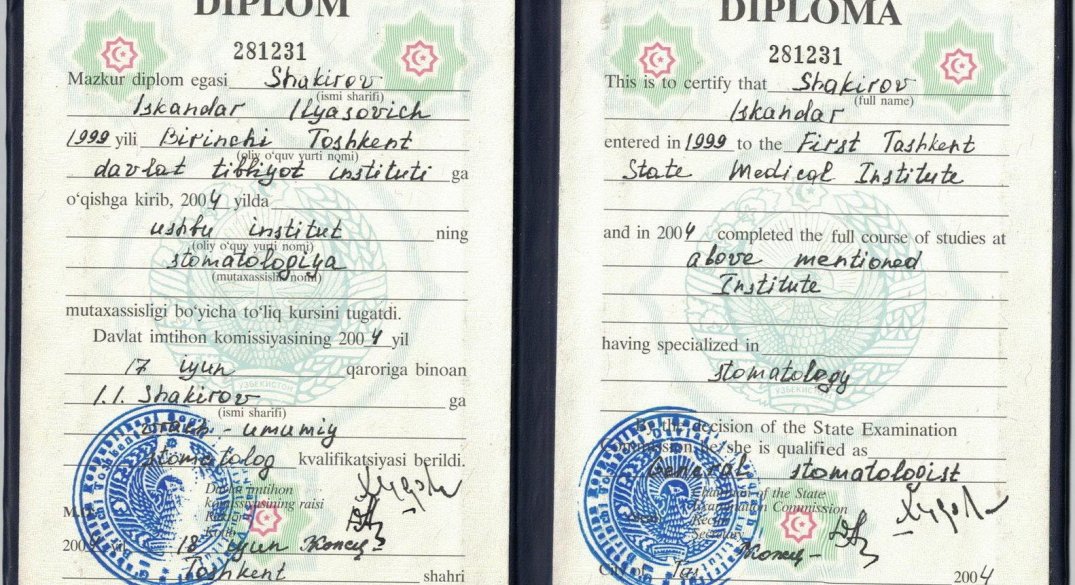 DIPLOM
281231
Mazkur diplom egasi Shakirov
(ismi sharifi)
Iskandar Ilyasovich
1999 yili Birinchi Toshkent
(oliy o‘quv yurti nomi)
davlat tibbiyot instituti ga
o‘qishga kirib, 2004 yilda
ushbu institut ning
(oliy o‘quv yurti nomi)
stomatologiya
(mutaxassislik nomi)
mutaxassisligi bo‘yicha to‘liq kursini tugatdi.
Davlat imtihon komissiyasining 2004 yil
17 iyun qaroriga binoan
I.I. Shakirov ga
(ismi sharifi)
vrach - umumiy
stomatolog kvalifikatsiyasi berildi.
Davlat imtihon
komissiyasining raisi
Rektor
Kotib
2004 yil 18 iyun
Toshkent shahri
DIPLOMA
281231
This is to certify that Shakirov
(full name)
Iskandar
entered in 1999 to the First Tashkent
State Medical Institute
and in 2004 completed the full course of studies at
above mentioned
Institute
having specialized in
stomatology
By the decision of the State Examination
Commission he/she is qualified as
General stomatologist
Chairman of the State
Examination Commission
Rector
Secretary
City of Tas 2004
УЗБЕКИСТОН
УЗБЕКИСТОН